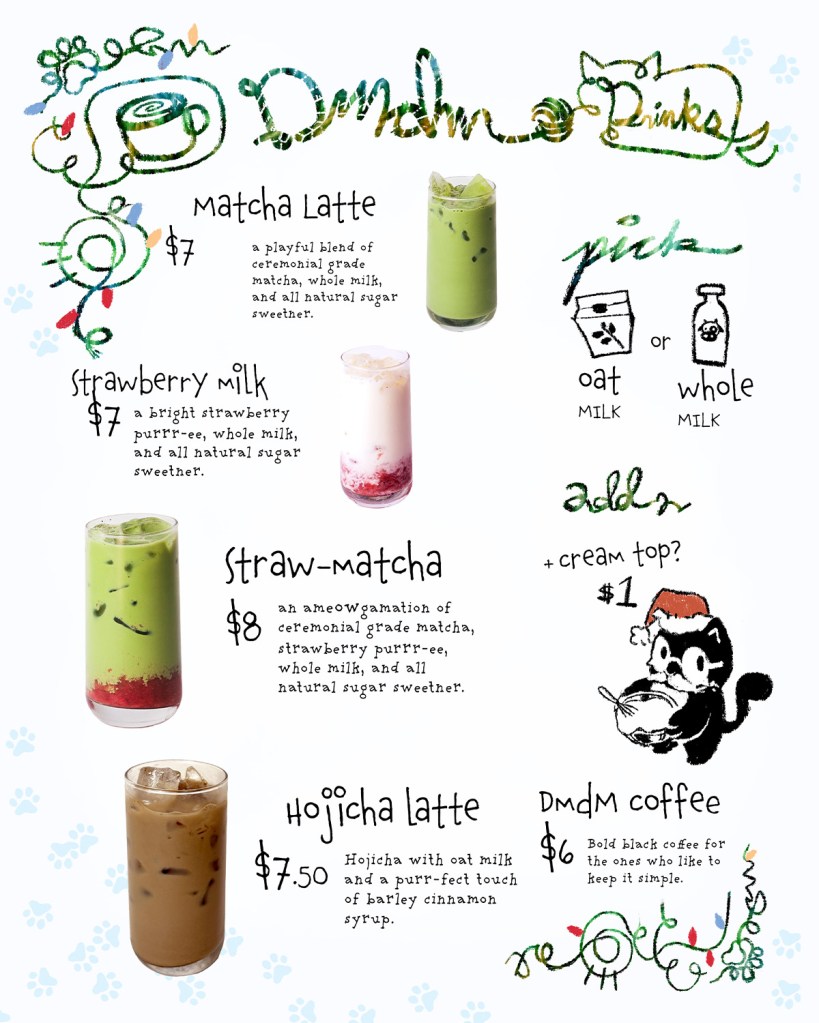 DMDM Drinks
Matcha Latte
$7
a playful blend of
ceremonial grade
matcha, whole milk,
and all natural sugar
sweetner.
pick
oat
MILK
or
whole
MILK
Strawberry Milk
$7
a bright strawberry
purrr-ee, whole milk,
and all natural sugar
sweetner.
adds
+ cream top?
$1
Straw-Matcha
$8
an ameowgamation of
ceremonial grade matcha,
strawberry purrr-ee,
whole milk, and all
natural sugar sweetner.
Hojicha latte
$7.50
Hojicha with oat milk
and a purr-fect touch
of barley cinnamon
syrup.
DMDM coffee
$6
Bold black coffee for
the ones who like to
keep it simple.